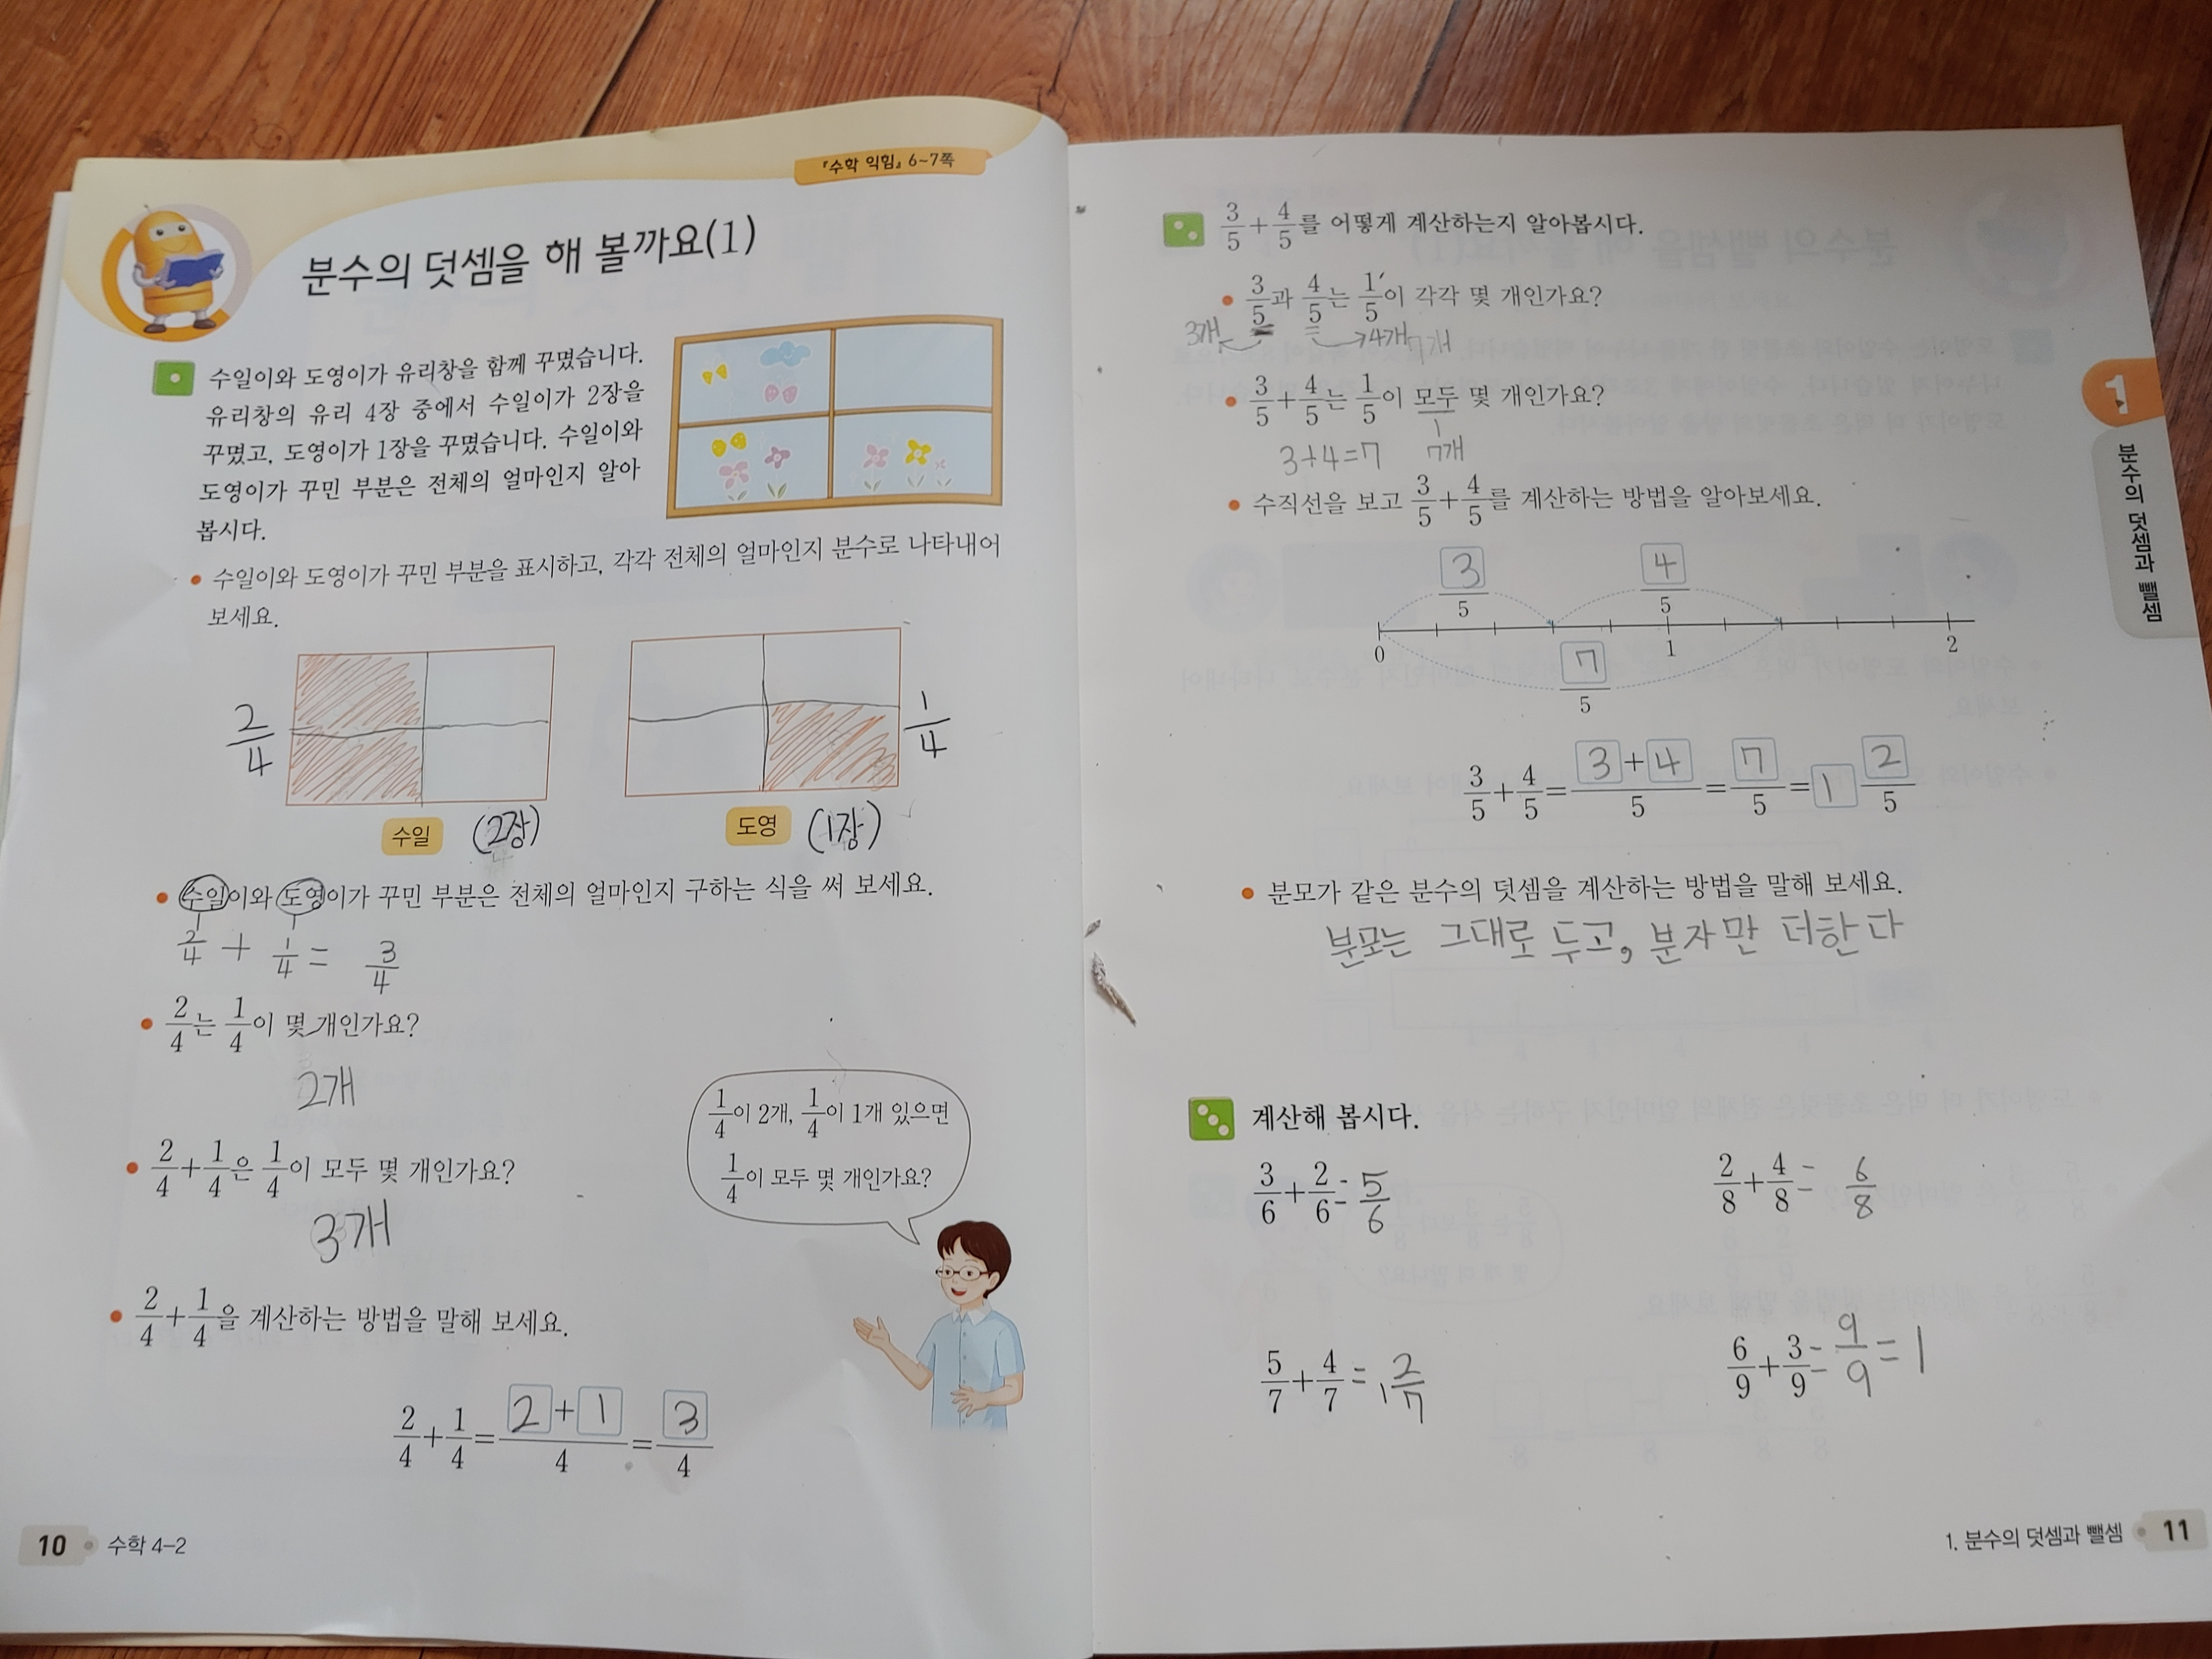 『수학 익힘』 6~7쪽
분수의 덧셈을 해 볼까요(1)
수일이와 도영이가 유리창을 함께 꾸몄습니다.
유리창의 유리 4장 중에서 수일이가 2장을
꾸몄고, 도영이가 1장을 꾸몄습니다. 수일이와
도영이가 꾸민 부분은 전체의 얼마인지 알아
봅시다.
• 수일이와 도영이가 꾸민 부분을 표시하고, 각각 전체의 얼마인지 분수로 나타내어
보세요.
2/4
1/4
수일 (2장)
도영 (1장)
• 수일이와 도영이가 꾸민 부분은 전체의 얼마인지 구하는 식을 써 보세요.
2/4 + 1/4 = 3/4
• 2/4는 1/4이 몇 개인가요?
2개
• 2/4+1/4은 1/4이 모두 몇 개인가요?
3개
1/4이 2개, 1/4이 1개 있으면
1/4이 모두 몇 개인가요?
• 2/4+1/4을 계산하는 방법을 말해 보세요.
2/4+1/4=2+1/4=3/4
10 수학 4-2
3/5+4/5를 어떻게 계산하는지 알아봅시다.
• 3/5과 4/5는 1/5이 각각 몇 개인가요?
3개 4개
• 3/5+4/5는 1/5이 모두 몇 개인가요?
3+4=7 7개
• 수직선을 보고 3/5+4/5를 계산하는 방법을 알아보세요.
3/5 4/5
0 1 2
7/5
3/5+4/5=3+4/5=7/5=1 2/5
• 분모가 같은 분수의 덧셈을 계산하는 방법을 말해 보세요.
분모는 그대로 두고, 분자만 더한다
계산해 봅시다.
3/6+2/6=5/6
2/8+4/8=6/8
5/7+4/7=1 2/7
6/9+3/9=9/9=1
1
분수의 덧셈과 뺄셈
1. 분수의 덧셈과 뺄셈 11